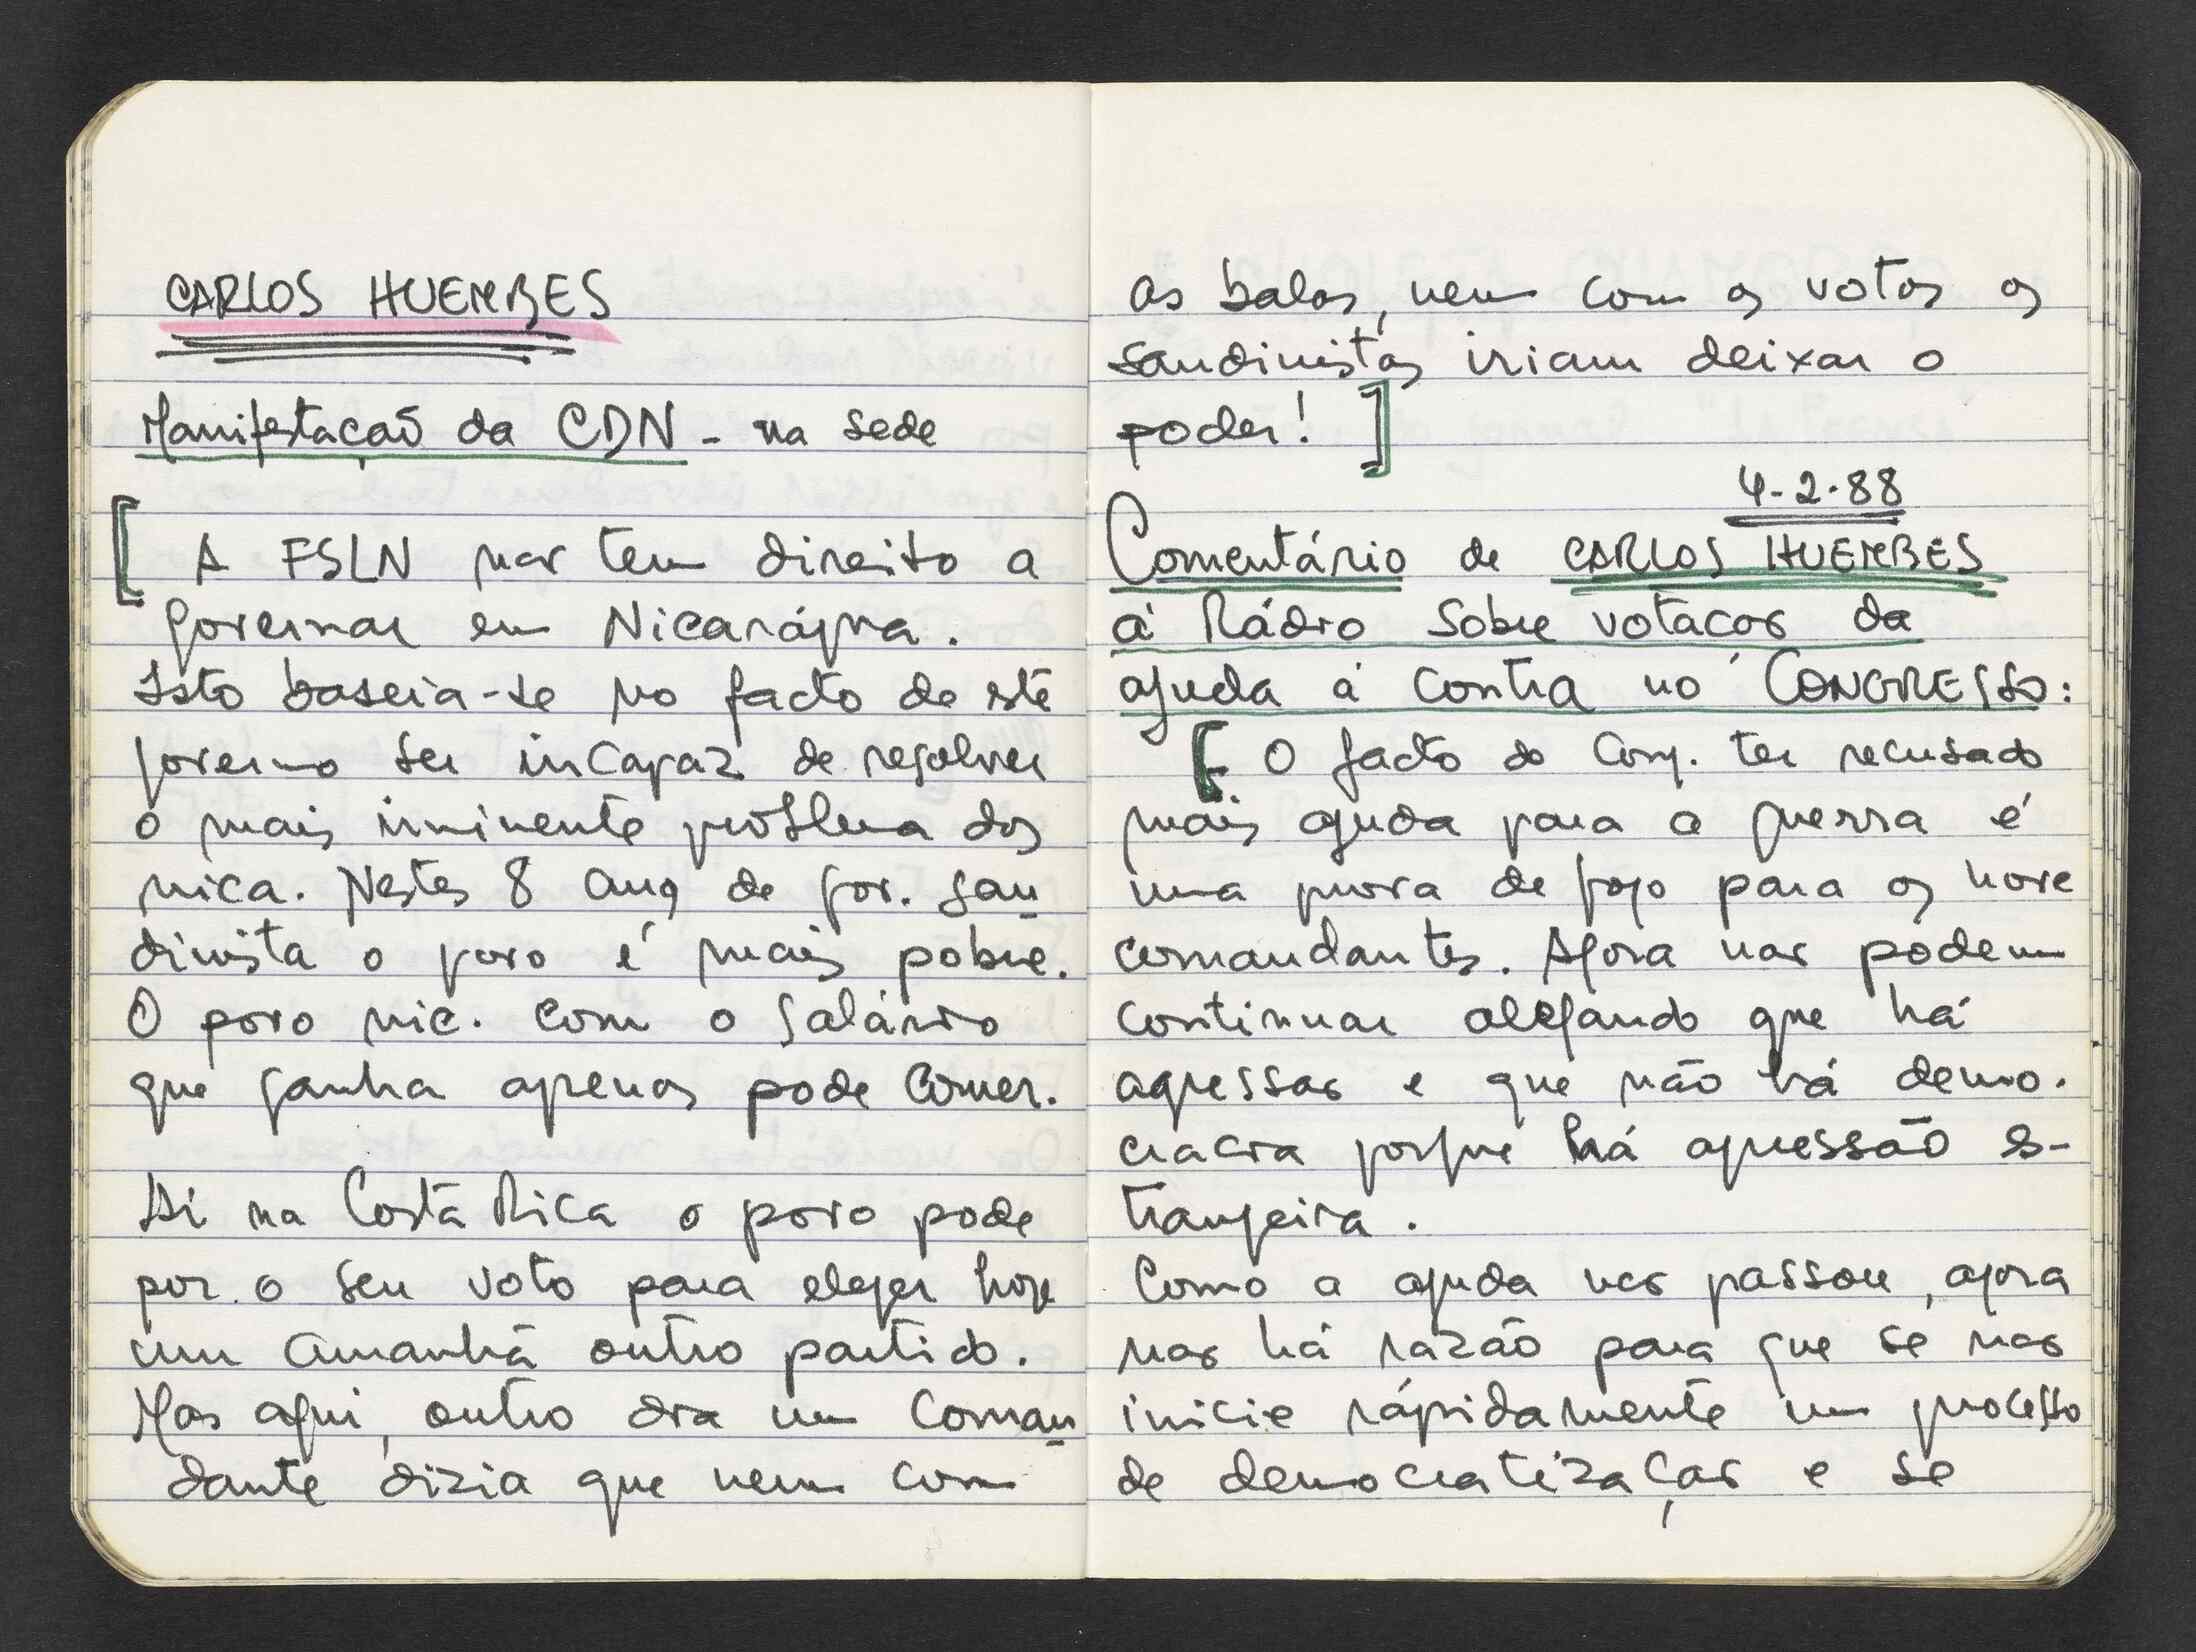 CARLOS HUEMBES
Manifestação da CDN - na sede
[ A FSLN não tem direito a
governar em Nicarágua.
Isto baseia-se no facto de este
governo ser incapaz de resolver
o mais iminente problema dos
nica. Nestes 8 anos de gov. san
dinista o povo é mais pobre.
O povo nic. com o salário
que ganha apenas pode comer.
Ai na Costa Rica o povo pode
por o seu voto para eleger hoje
um amanhã outro partido.
Mas aqui, outro dia um Coman
dante dizia que nem com
as balas, nem com os votos os
sandinistas iriam deixar o
poder! ]
4-2-88
Comentário de CARLOS HUEMBES
á Rádio Sobre votação da
ajuda á contra no CONGRESSO:
[ O facto do Cong. ter recusado
mais ajuda para a guerra é
uma prova de fogo para os nove
comandantes. Agora não podem
continuar alegando que há
agressão e que não há demo.
cracia porque há agressão es-
trangeira.
Como a ajuda não passou, agora
não há razão para que se não
inicie rápidamente um processo
de democratização e se